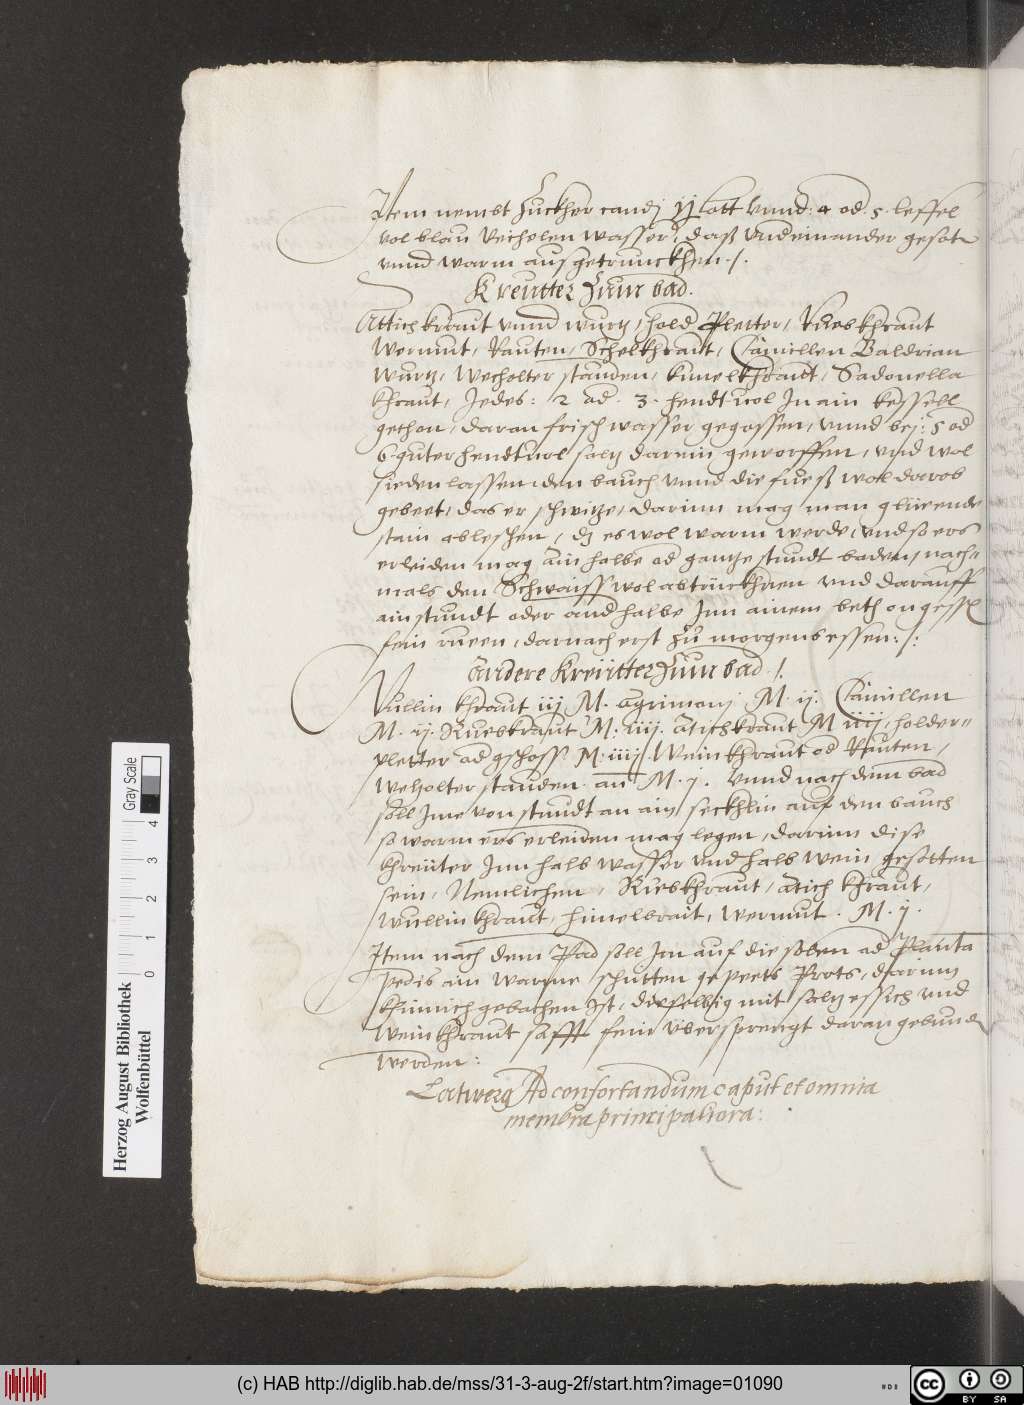 Item nembt Zuckher candj ij lott vnnd 4 od 5 leffel
vol blau veiheln wasser, daß vndeinander gesot
vnnd warm ausgetrunckhen ./.
Kreutter Zum bad.
Attichkraut vnnd wurtz, hold Pletter, Ruebkhraut
Wermut, Rauten, Schelkhraut, Camillen Baldrian
Wurtz, Wecholter stauden, kimelkhraut, Sadonella
khraut, Jedes: 2 od. 3. hendt vol In ain kessell
gethon, daran frisch wasser gegossen, vnnd bej: 5 od
6 guter hendtuol saltz darein geworffen, vnd wol
sieden lassen, den bauch vnnd die fueß woll darob
gebeet, das er schwitze, darinn mag man glüeende
stain ableschen, dz es wol warm werde, vnd so ers
erleiden mag ain halbe od gantze stundt baden, nach-
mals den Schwaiss wol abtrückhnen vnd darauff
ain stundt oder andhalbe Inn ainem beth
fein rueen, darnach erst zu morgens essen ./.
Andere Kreütter Zum bad ./.
Wullin khraut iij M. agrimonj M. ij. Camillen
M. ij. Ruebkraut M. iiij. Atichkraut M iiij, holder-
pletter od gschoss M. iiij Weinkhraut od Rauten,
Weholter stauden an M. j. vnnd nach dem bad
soll Ime von stundt an ain seckhlin auf den bauch
so warm ers erleiden mag legen, darinn dise
khreüter Inn halb wasser vnd halb wein gesotten
sein, Nemlichen, Ruebkhraut, Atich khraut,
Wullin khraut, himelbrait, Wermut. M. j.
Item nach dem Pad soll Im auf die solen ad Planta
pedis ain warme schnitten gepeets Prots, darinn
khimich gebachen ist, dieselbig mit saltz essich vnd
Weinkhraut safft fein übersprengt daran gebund
werden:
Latwerg Ad confortandum caput et omnia
membra principaliora:
Herzog August Bibliothek
Wolfenbüttel
0 1 2 3 4
Gray Scale
(c) HAB http://diglib.hab.de/mss/31-3-aug-2f/start.htm?image=01090
cc BY SA